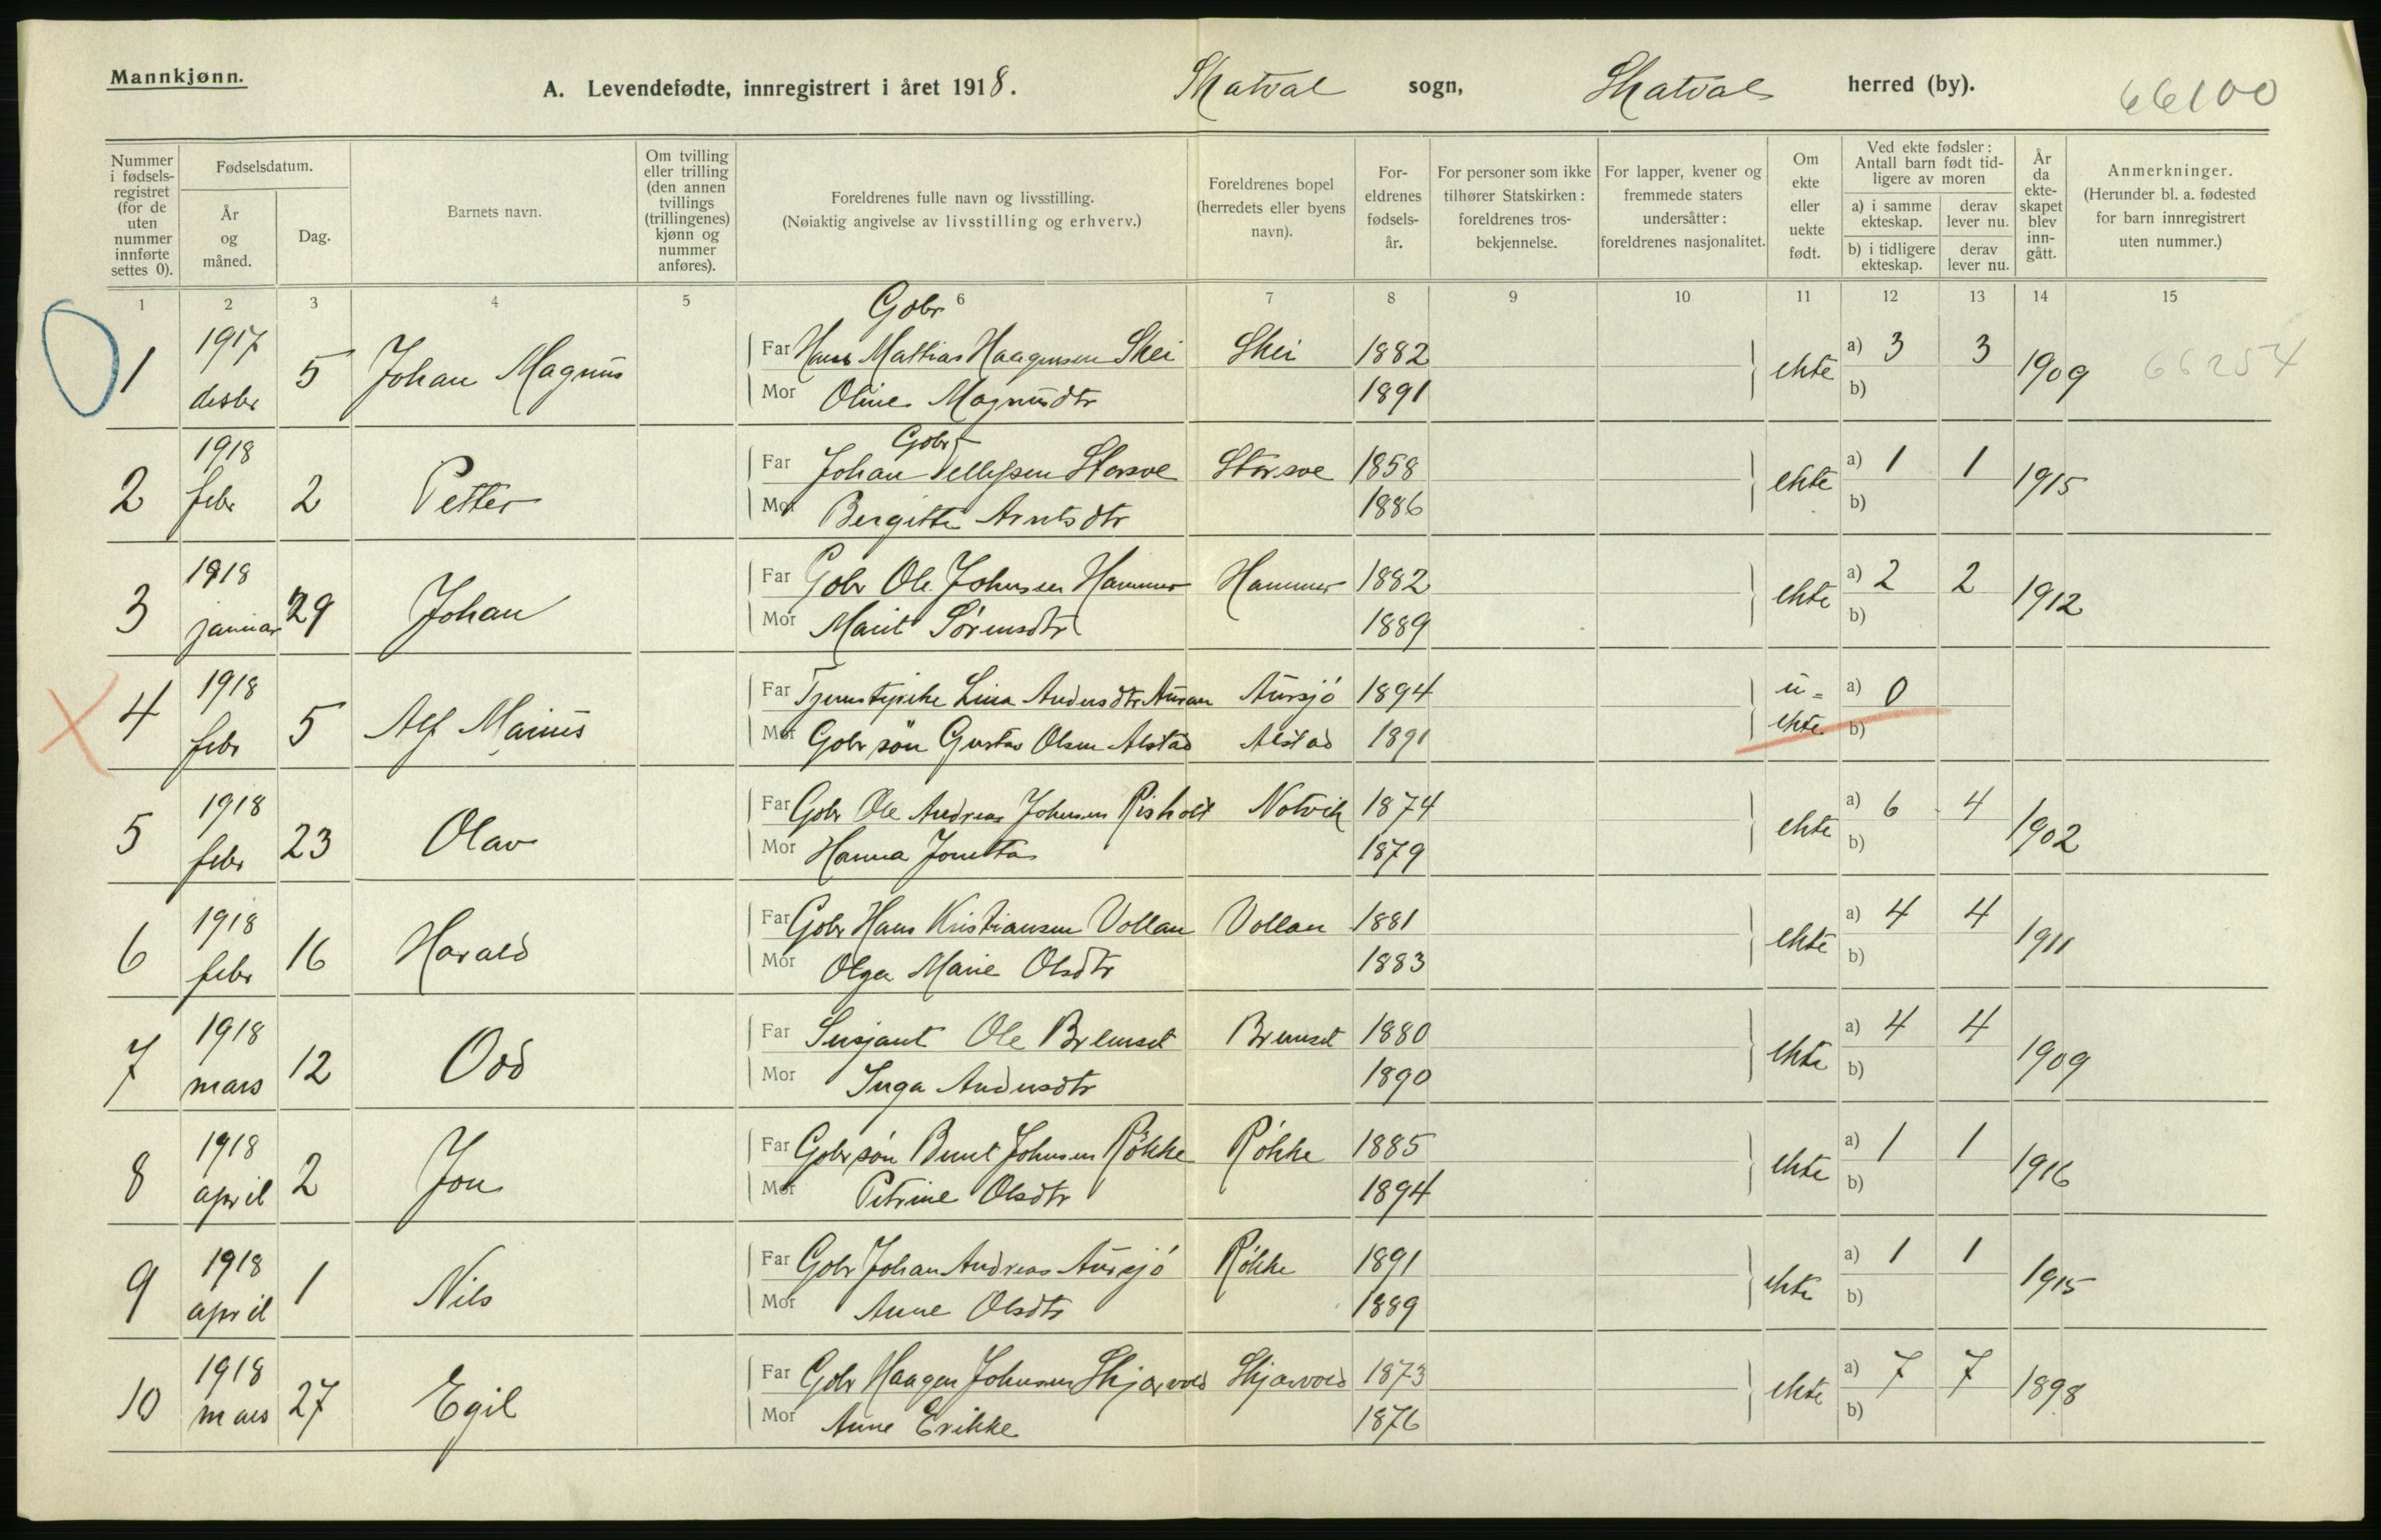 Mannkjønn.
A. Levendefødte, innregistrert i året 1918. Skatval sogn, Skatval herred (by). 66100
Nummer i fødsels-registret (for de uten nummer innførte settes 0).
Fødselsdatum.
År og måned.
Dag.
Barnets navn.
Om tvilling eller trilling (den annen tvillings (trillingenes) kjønn og nummer anføres).
Foreldrenes fulle navn og livsstilling.
(Nøiaktig angivelse av livsstilling og erhverv.)
Foreldrenes bopel (herredets eller byens navn).
For-eldrenes fødsels-år.
For personer som ikke tilhører Statskirken: foreldrenes tros-bekjennelse.
For lapper, kvener og fremmede staters undersåtter: foreldrenes nasjonalitet.
Om ekte eller uekte født.
Ved ekte fødsler: Antall barn født tid-ligere av moren
a) i samme ekteskap. derav lever nu.
b) i tidligere ekteskap. derav lever nu.
År da ekte-skapet blev inn-gått.
Anmerkninger.
(Herunder bl. a. fødested for barn innregistrert uten nummer.)
1 2 3 4 5 6 7 8 9 10 11 12 13 14 15
Gobr
1 1917 desbr 5 Johan Magnus Far Hans Mathias Haagensen Skei Skei 1882 ekte a) 3 3 1909 66254
Mor Oline Magnusdtr 1891 b)
Gobr
2 1918 febr 2 Petter Far Johan Pellessen Storsve Storsve 1858 ekte a) 1 1 1915
Mor Bergitte Arntsdtr 1886 b)
3 1918 januar 29 Johan Far Gobr Ole Johnsen Hammer Hammer 1882 ekte a) 2 2 1912
Mor Marit Sørensdtr 1889 b)
4 1918 febr 5 Alf Marius Far Tjenestepike Lina Andersdtr Auran Aursjø 1894 u=ekte a) 0
Mor Gobr søn Gustav Olsen Alstad Alstad 1891 b)
5 1918 febr 23 Olav Far Gobr Ole Andreas Johnsen Risholt Notvik 1874 ekte a) 6 4 1902
Mor Hanna Jonetta 1879 b)
6 1918 febr 16 Harald Far Gobr Hans Kristiansen Vollan Vollan 1881 ekte a) 4 4 1911
Mor Olga Marie Olsdtr 1883 b)
7 1918 mars 12 Odd Far Sersjant Ole Bremset Bremset 1880 ekte a) 4 4 1909
Mor Inga Andersdtr 1890 b)
8 1918 april 2 Jon Far Gobr søn Bernt Johnsen Røkke Røkke 1885 ekte a) 1 1 1916
Mor Petrine Olsdtr 1894 b)
9 1918 april 1 Nils Far Gobr Johan Andreas Aursjø Røkke 1891 ekte a) 1 1 1915
Mor Anne Olsdtr 1889 b)
10 1918 mars 27 Egil Far Gobr Haagen Johnsen Skjervold Skjervold 1873 ekte a) 7 7 1898
Mor Anne Erikke 1876 b)